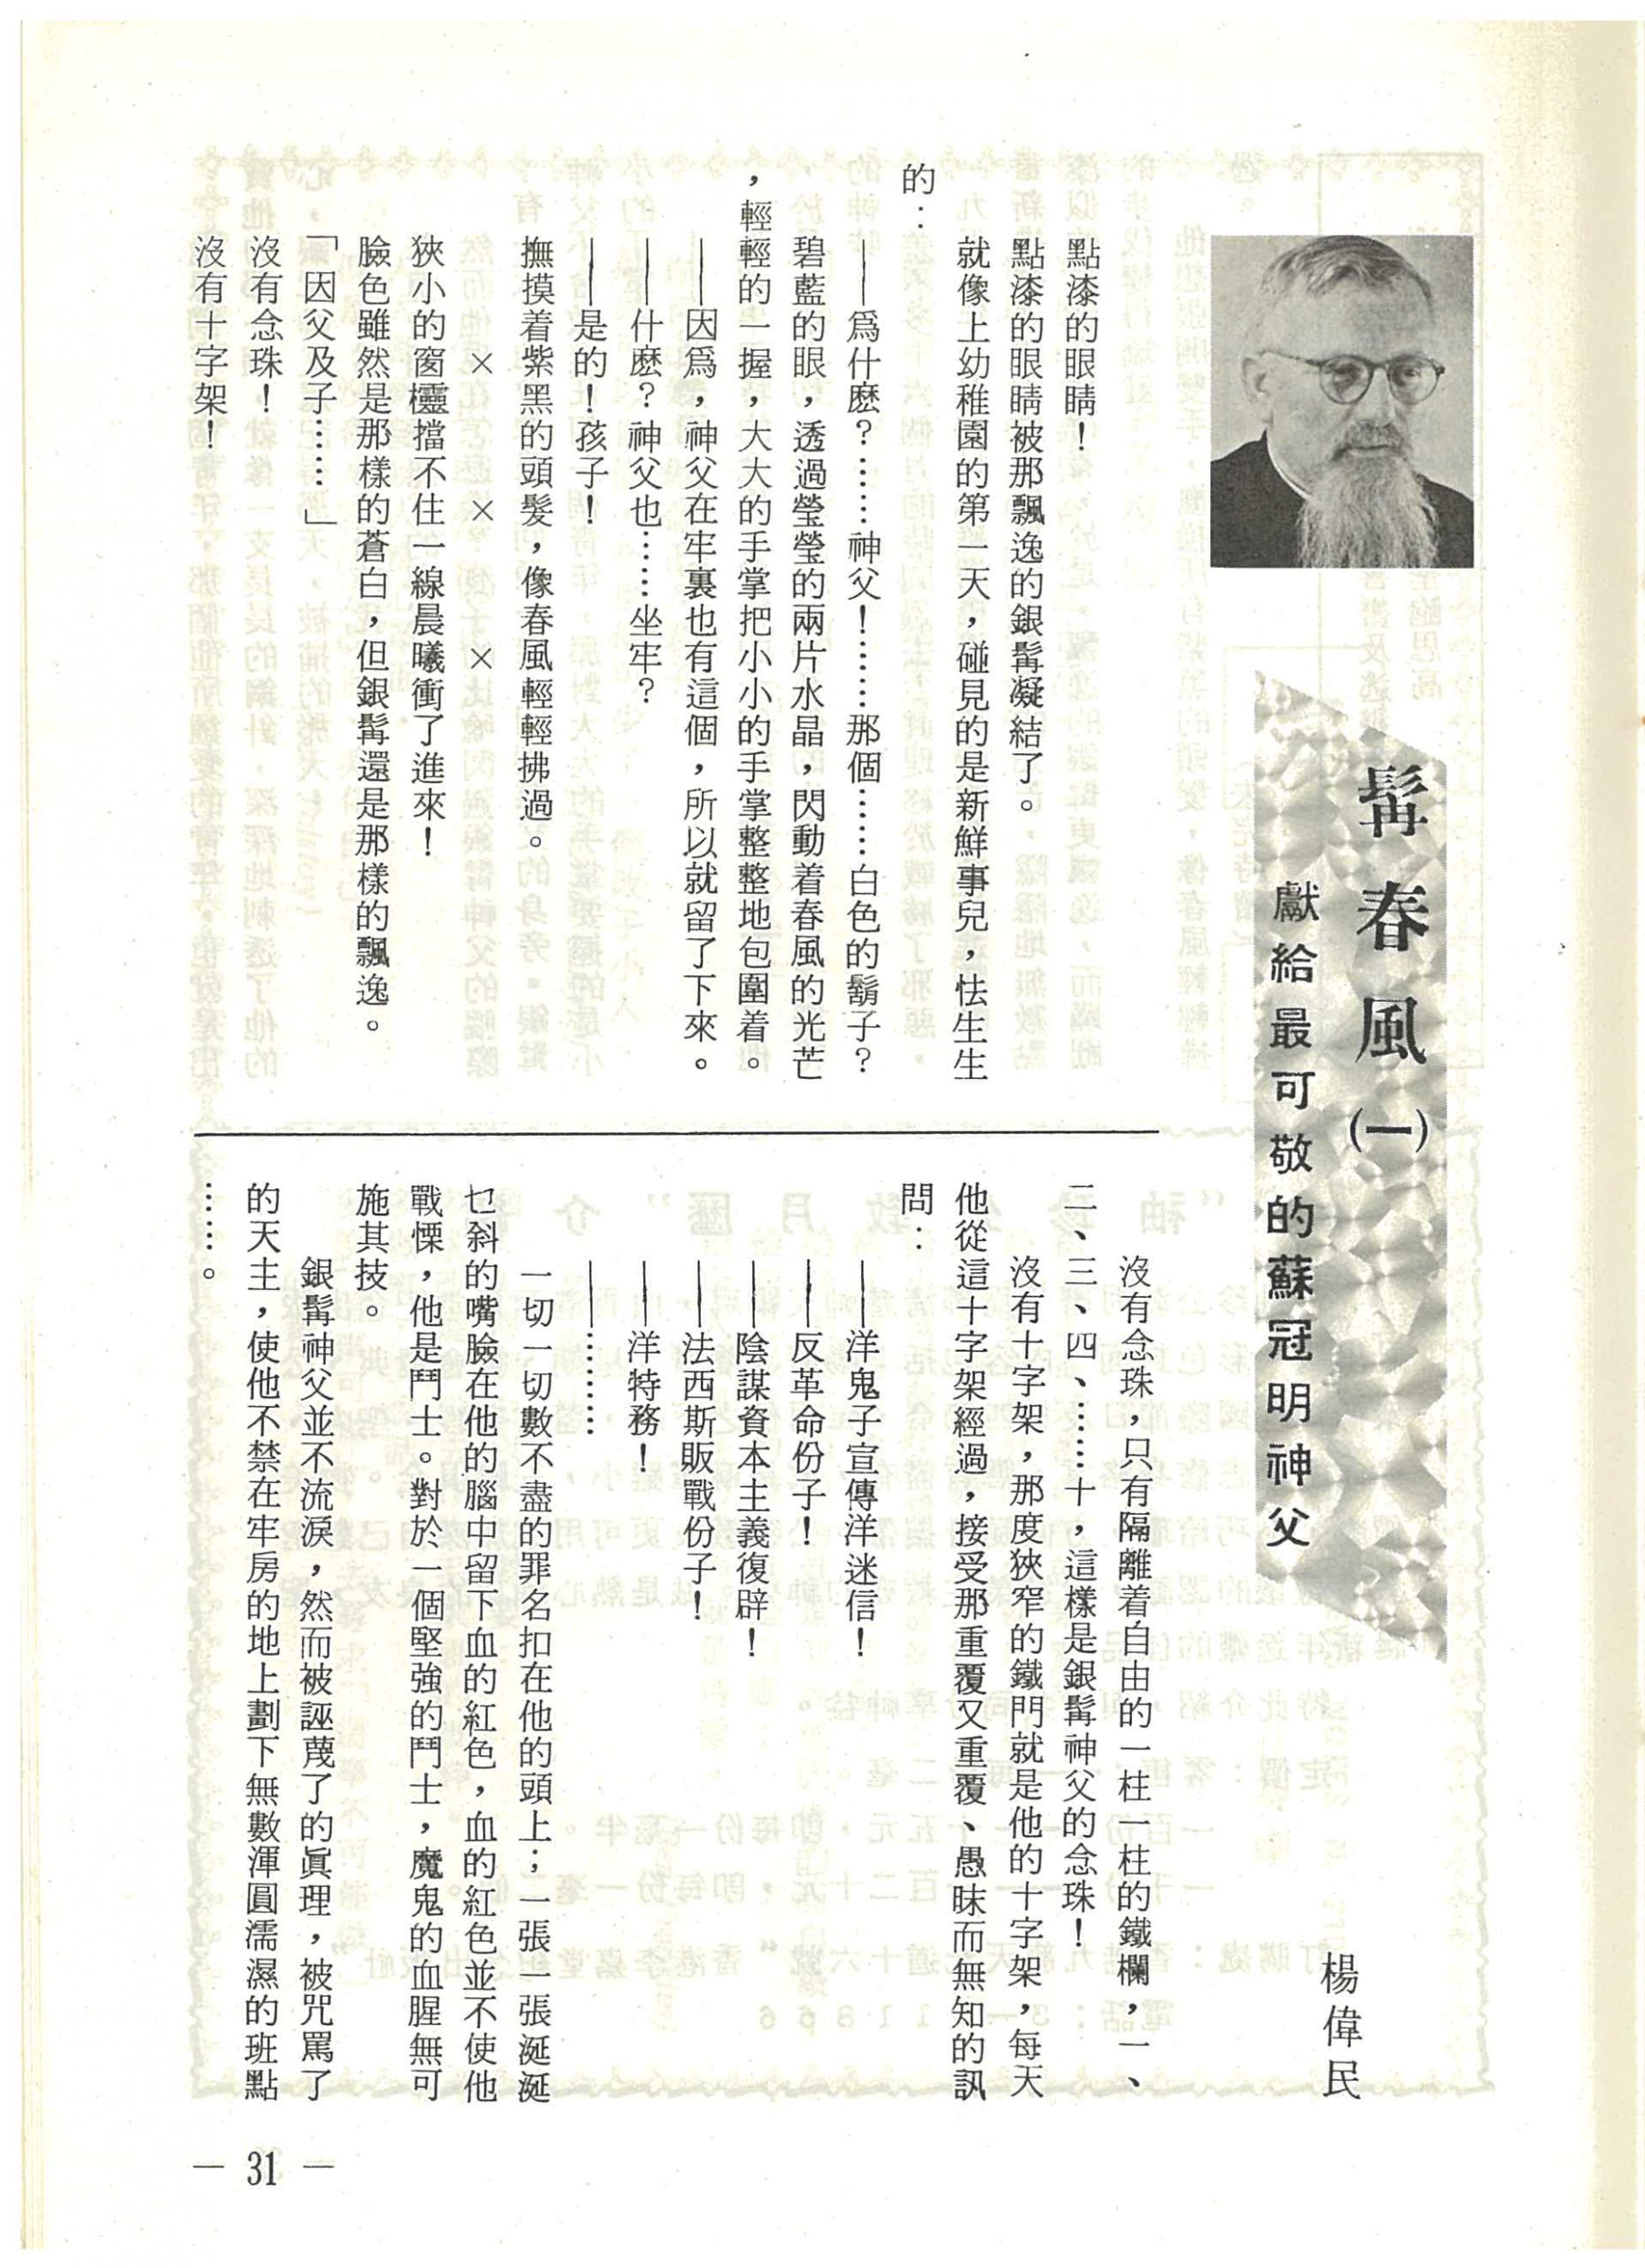 髯春風(一)
獻給最可敬的蘇冠明神父
楊偉民
點漆的眼睛!
點漆的眼睛被那飄逸的銀髯凝結了。
就像上幼稚園的第一天,碰見的是新鮮事兒,怯生生
的:
——爲什麽?……神父!……那個……白色的鬍子?
碧藍的眼,透過瑩瑩的兩片水晶,閃動着春風的光芒
,輕輕的一握,大大的手掌把小小的手掌整整地包圍着。
——因爲,神父在牢裏也有這個,所以就留了下來。
——什麽?神父也……坐牢?
——是的!孩子!
撫摸着紫黑的頭髮,像春風輕輕拂過。
× × ×
狹小的窗櫺擋不住一線晨曦衝了進來!
臉色雖然是那樣的蒼白,但銀髯還是那樣的飄逸。
「因父及子……」
沒有念珠!
沒有十字架!
沒有念珠,只有隔離着自由的一柱一柱的鐵欄,一、
二、三、四、……十,這樣是銀髯神父的念珠!
沒有十字架,那度狹窄的鐵門就是他的十字架,每天
他從這十字架經過,接受那重覆又重覆、愚昧而無知的訊
問:
——洋鬼子宣傳洋迷信!
——反革命份子!
——陰謀資本主義復辟!
——法西斯販戰份子!
——洋特務!
——………
一切一切數不盡的罪名扣在他的頭上;一張一張涎涎
乜斜的嘴臉在他的腦中留下血的紅色,血的紅色並不使他
戰慄,他是鬥士。對於一個堅強的鬥士,魔鬼的血腥無可
施其技。
銀髯神父並不流淚,然而被誣蔑了的眞理,被咒罵了
的天主,使他不禁在牢房的地上劃下無數渾圓濡濕的班點
……。
— 31 —